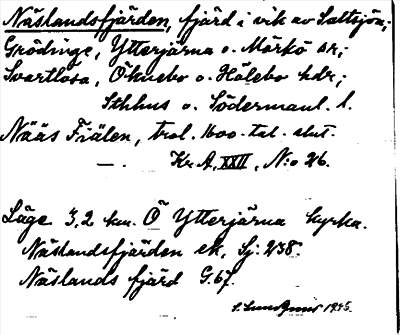 Näslandsfjärden, fjärd i vik av Saltsjön;
Grödinge, Ytterjärna o. Mörkö sr;
Svartlösa, Öknebo o. Hölebo hdr;
Sthlms o. Södermanl. l.
Nääs Fiälen, trol. 1600-tal. slut.
—. Kr. A. XXII, N:o 26.
Läge. 3,2 km. Ö Ytterjärna kyrka.
Näslandsfjärden ek, Sj. 238.
Näslands fjärd G. 67.
S. Lundqvist 1935.